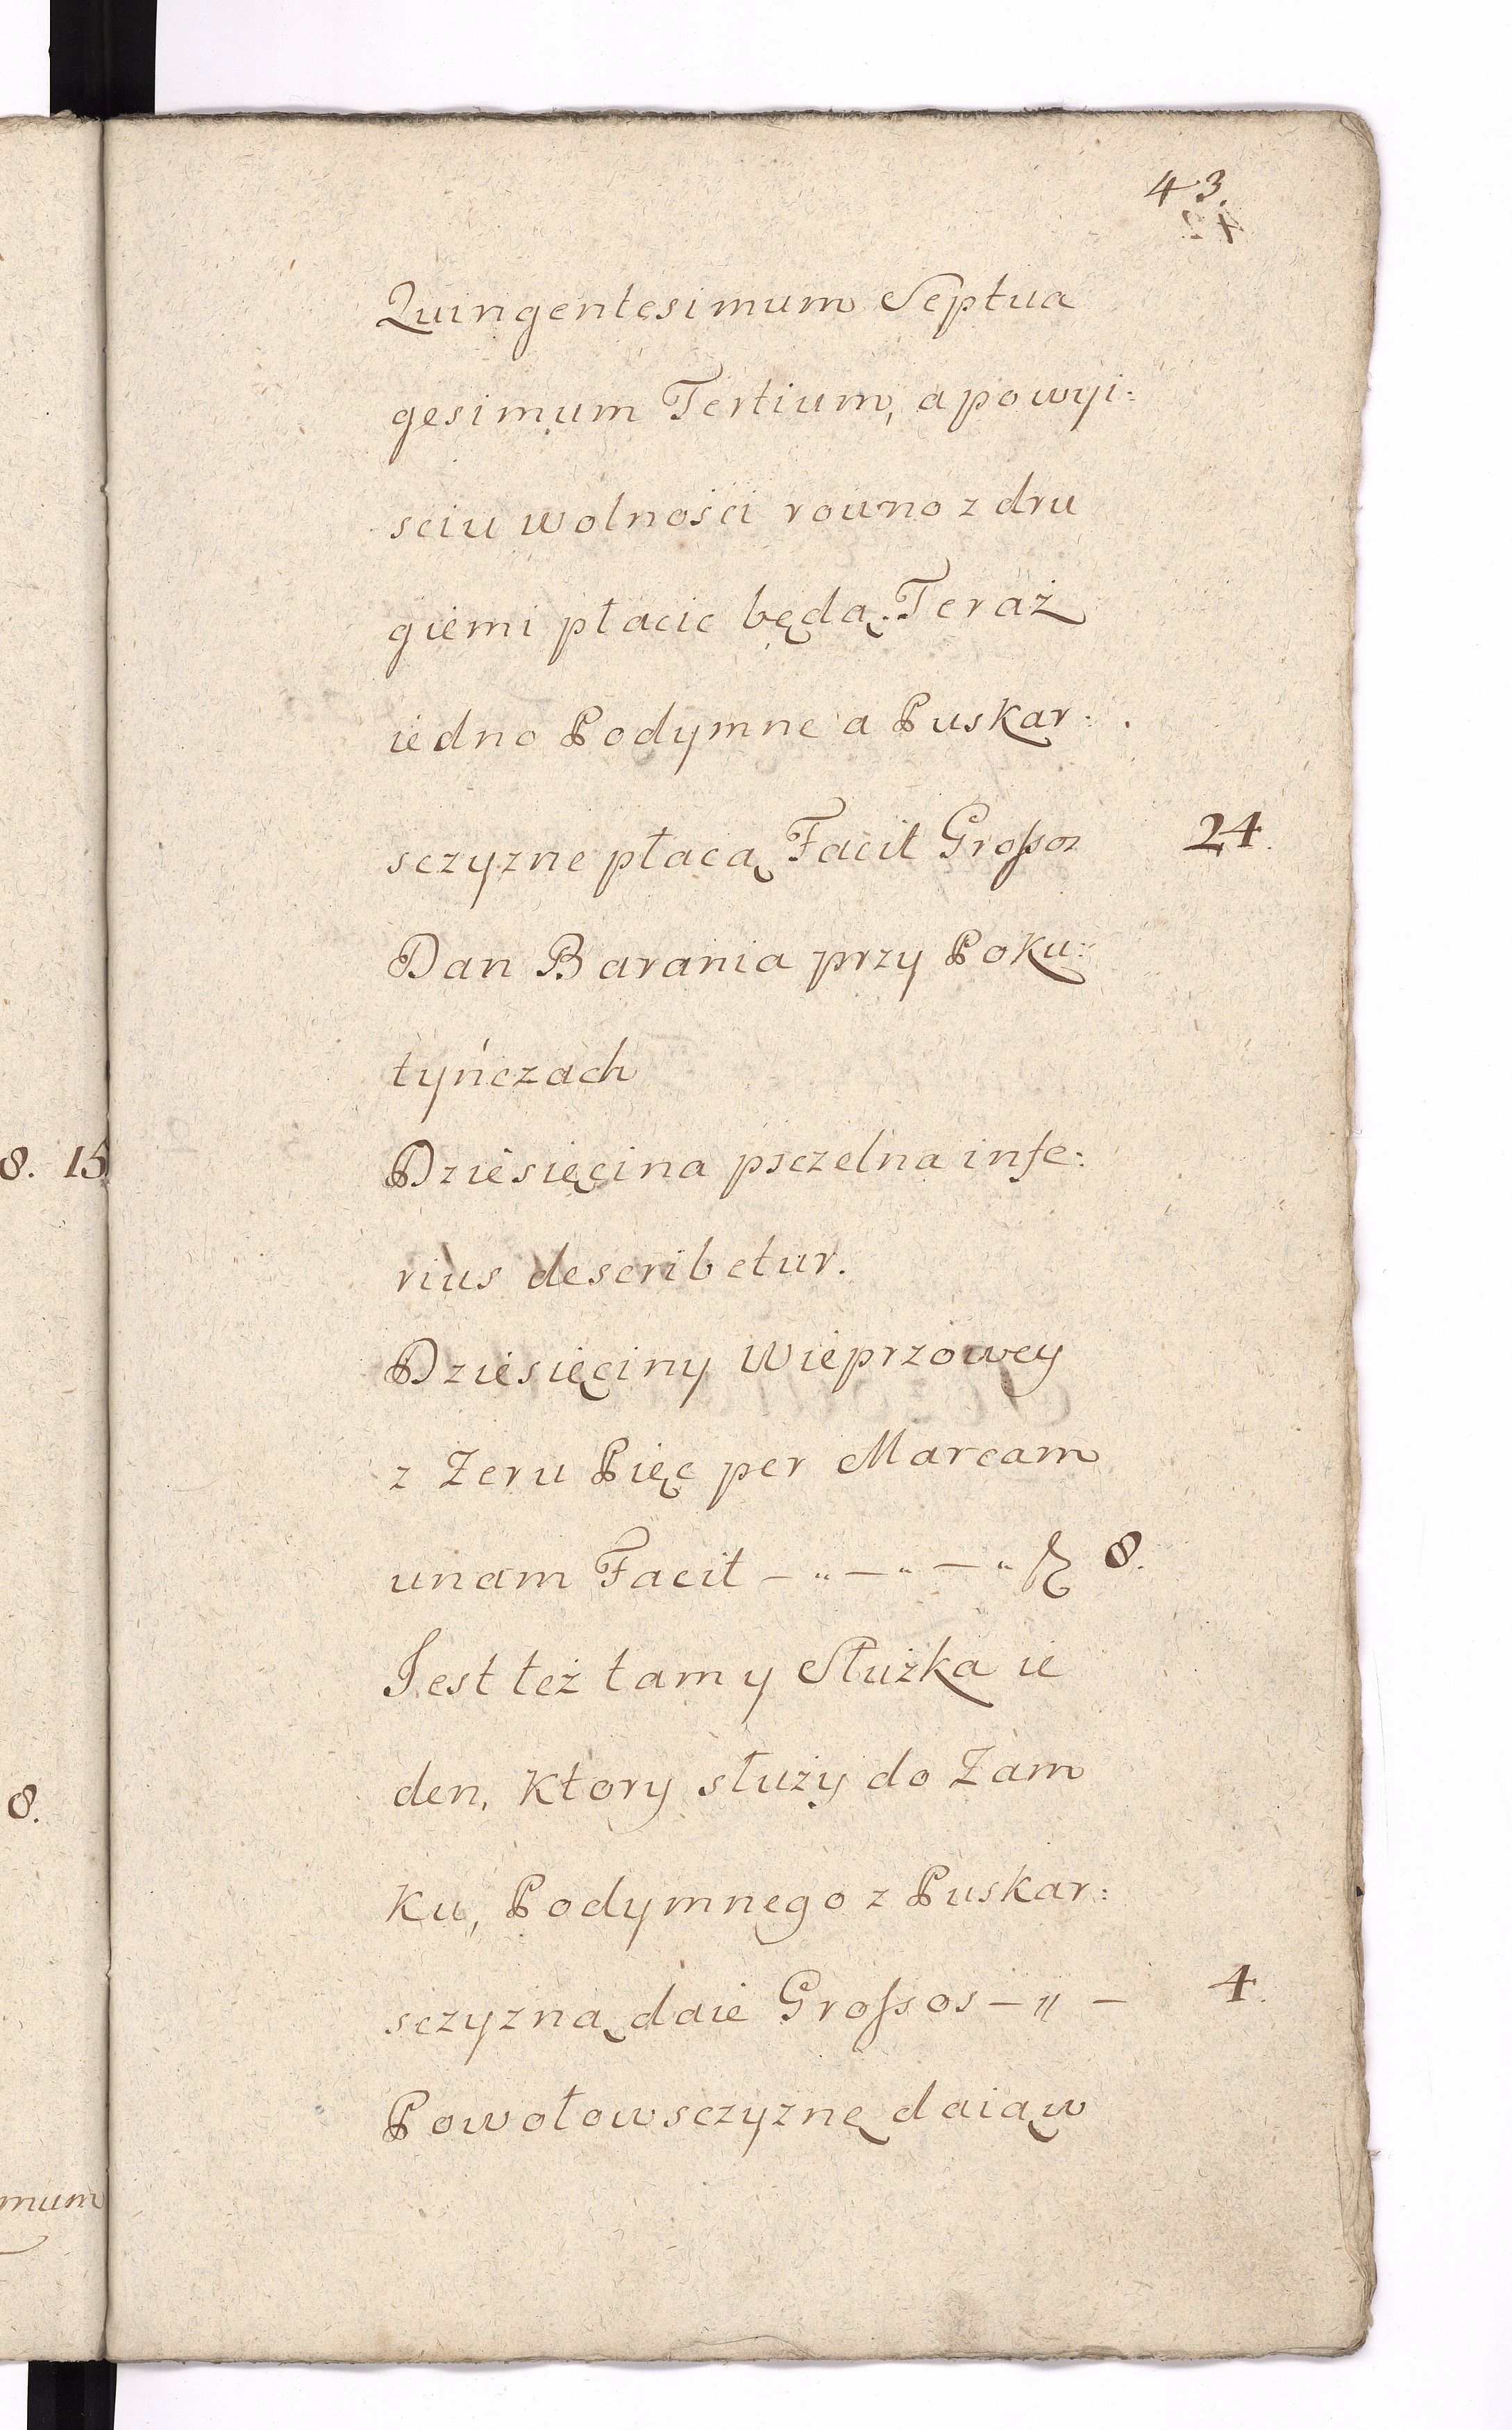 43.
Quingentesimum Septua
gesimum Tertium, a powyi:
sciu wolności rowno z dru
giemi płacic będą. Teraż
iedno Podymne a Puskar:
sczyzne płacą Facit Grossos 24.
Dan Barania przy Poku:
tyńczach
Dziesięcina psczelna infe:
rius describetur.
Dziesięciny Wieprzowey
z Zeru Pięc per Marcam
unam Facit 8.
Jest też tam y Służka ie
den, Ktory służy do Zam
Ku, Podymnego z Puskar:
sczyzną daie Grossos 4.
Powołowsczyznę daią w
8. 15
8.
mum